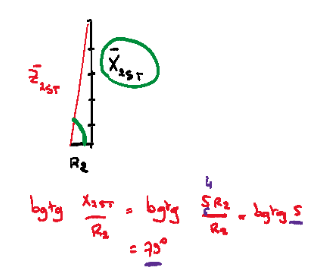 X̄₂ST
Z̄₂ST
R₂
4
bgtg X₂ST/R₂ = bgtg 5R₂/R₂ = bgtg 5
= 79°